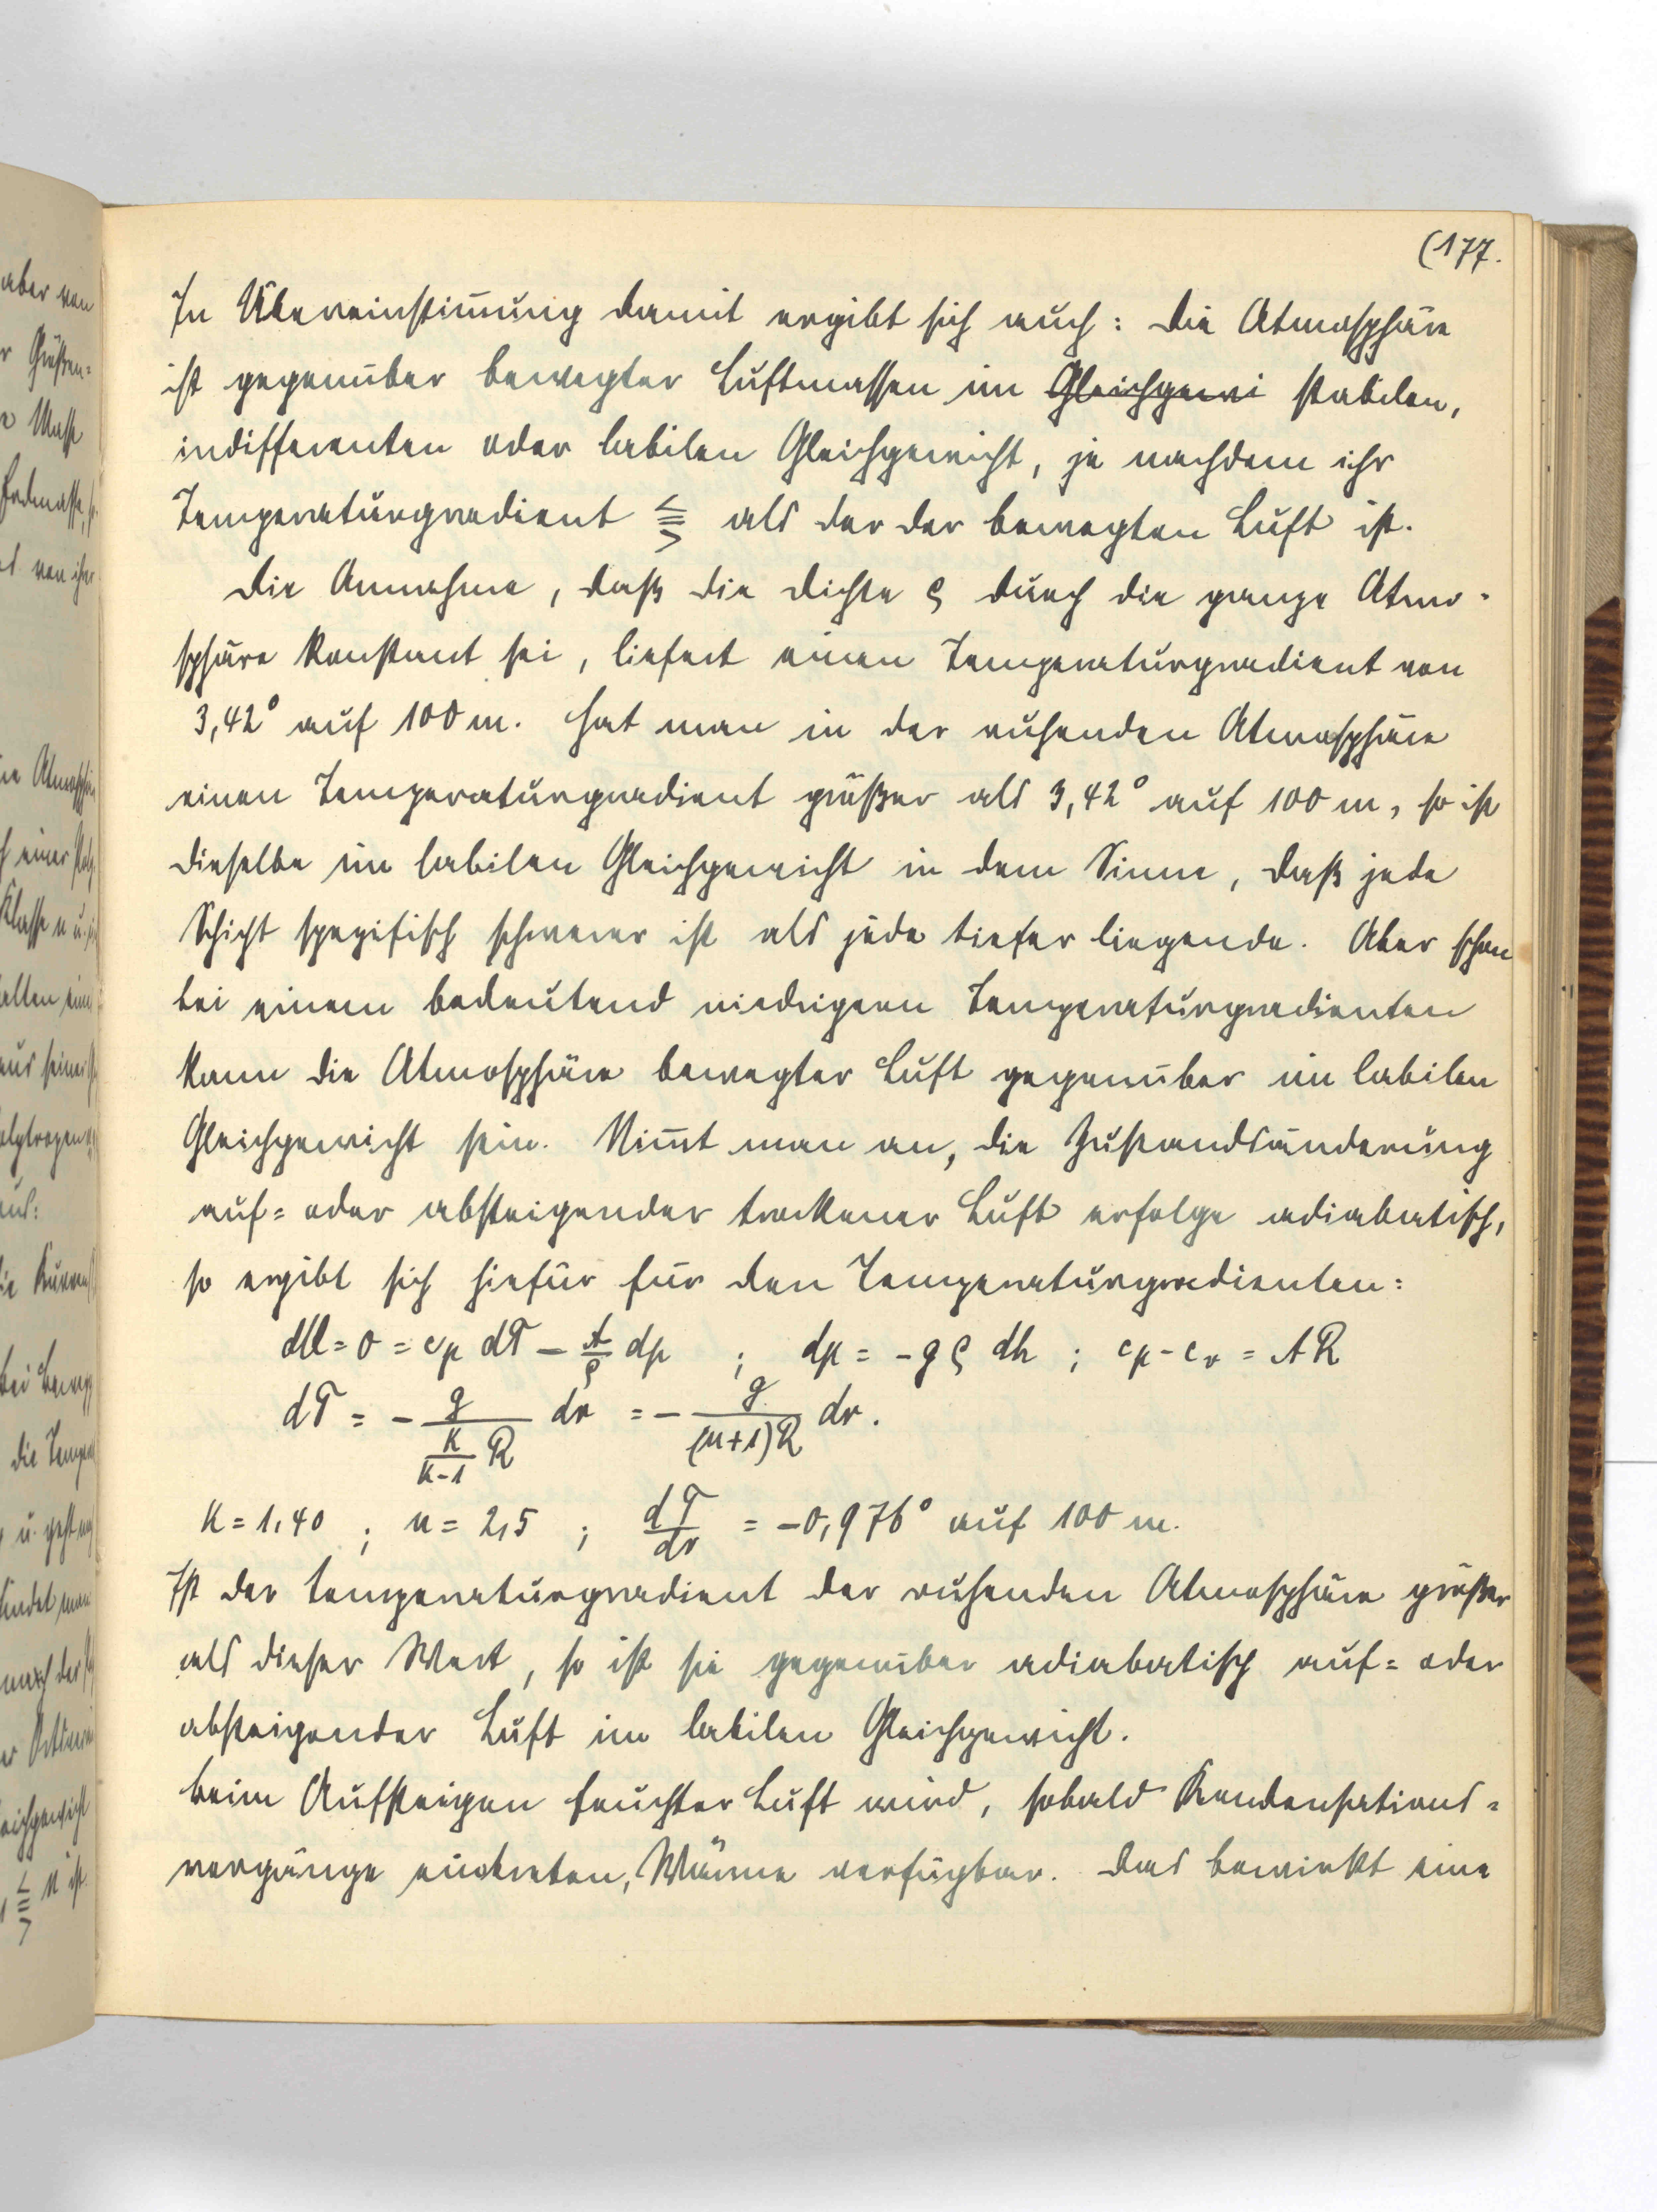 (177.
In Übereinstim̅ung damit ergibt sich auch: Die Atmosphäre
ist gegenüber bewegter Luftmassen im Gleichgewi stabilen,
indifferenten oder labilen Gleichgewicht, je nachdem ihr
Temperaturgradient ⪋ als der der bewegten Luft ist.
Die Annahme, daß die Dichte ρ durch die ganze Atmo=
sphäre konstant sei, liefert einen Temperaturgradient von
3,42° auf 100 m. Hat man in der ruhenden Atmosphäre
einen Temperaturgradient größer als 3,42° auf 100 m, so ist
dieselbe im labilen Gleichgewicht in dem Sinne, daß jede
Schicht spezifisch schwerer ist als jede tiefer liegende. Aber schon
bei einem bedeutend niedrigeren Temperaturgradienten
kann die Atmosphäre bewegter Luft gegenüber im labilen
Gleichgewicht sein. Nim̅t man an, die Zustandsänderung
auf= oder absteigender trockener Luft erfolge adiabatisch,
so ergibt sich hiefür für den Temperaturgradienten:
dQ = 0 = cp dT − A/ρ dp ; dp = −gρ dh ; cp − cv = AR
dT = − g/(K/(K−1) R) dr = − g/((n+1)R) dr.
K = 1,40 ; n = 2,5 ; dT/dr = −0,976° auf 100 m.
Ist der Temperaturgradient der ruhenden Atmosphäre größer
als dieser Wert, so ist sie gegenüber adiabatisch auf= oder
absteigender Luft im labilen Gleichgewicht.
Beim Aufsteigen feuchter Luft wird, sobald Kondensations=
vorgänge eintreten, Wärme verfügbar. Das bewirkt eine